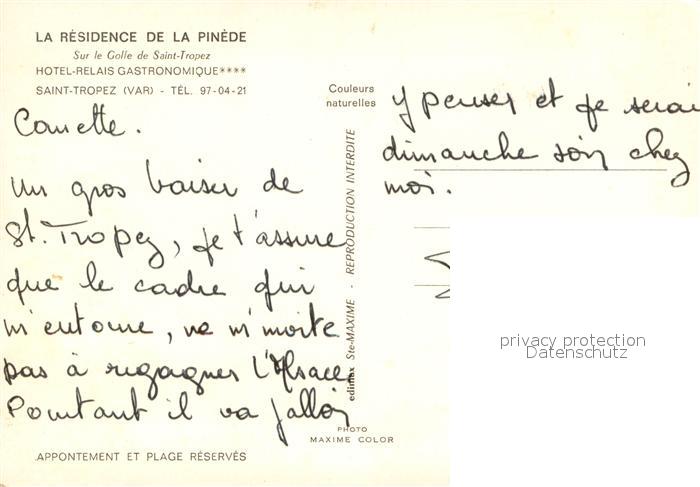 LA RÉSIDENCE DE LA PINÈDE
Sur le Golfe de Saint-Tropez
HOTEL-RELAIS GASTRONOMIQUE****
SAINT-TROPEZ (VAR) - TÉL. 97-04-21
un gros baiser de
St. Tropez, je t'assure
que le cadre qui
m'entoure, ne m'incite
pas à regagner l'Alsace.
Pourtant il va falloir
APPONTEMENT ET PLAGE RÉSERVÉS
Couleurs
naturelles
edimax Ste-MAXIME - REPRODUCTION INTERDITE
PHOTO
MAXIME COLOR
y penser et je serai
dimanche soir chez
moi.
privacy protection
Datenschutz